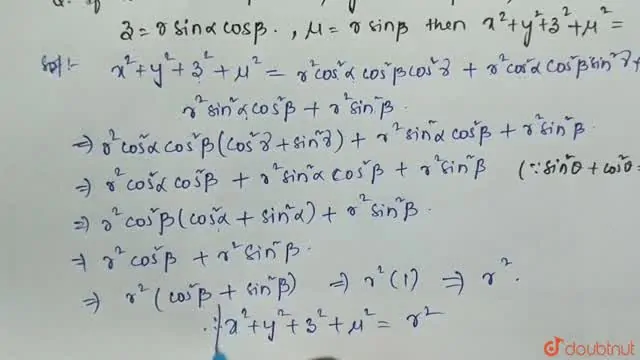 z = r sinα cosβ. , μ = r sinβ then x²+y²+z²+μ² =
Sol:- x²+y²+z²+μ² = r²cos²α cos²β cos²γ + r²cos²α cos²β sin²γ +
r²sin²α cos²β + r²sin²β.
⇒ r²cos²α cos²β (cos²γ + sin²γ) + r²sin²α cos²β + r²sin²β.
⇒ r²cos²α cos²β + r²sin²α cos²β + r²sin²β (∵ sin²θ + cos²θ =
⇒ r²cos²β (cos²α + sin²α) + r²sin²β.
⇒ r²cos²β + r²sin²β.
⇒ r² (cos²β + sin²β) ⇒ r² (1) ⇒ r².
∴ x²+y²+z²+μ² = r²
doubtnut